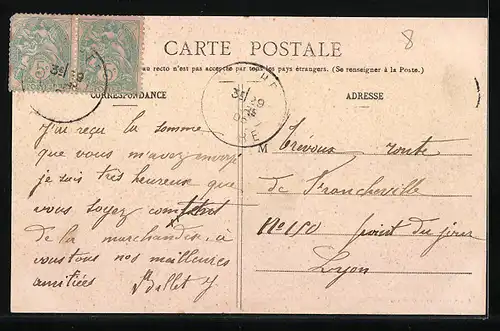 8
CARTE POSTALE
au recto n'est pas acceptée par tous les pays étrangers. (Se renseigner à la Poste.)
CORRESPONDANCE
ADRESSE
J'ai reçu la somme
que vous m'avez envoyé
je suis très heureux que
vous soyez content
de la marchandise, à
vous tous nos meilleures
amitiées
Ballet J
M Trévoux route
de Francheville
No 110 point du jour
Lyon